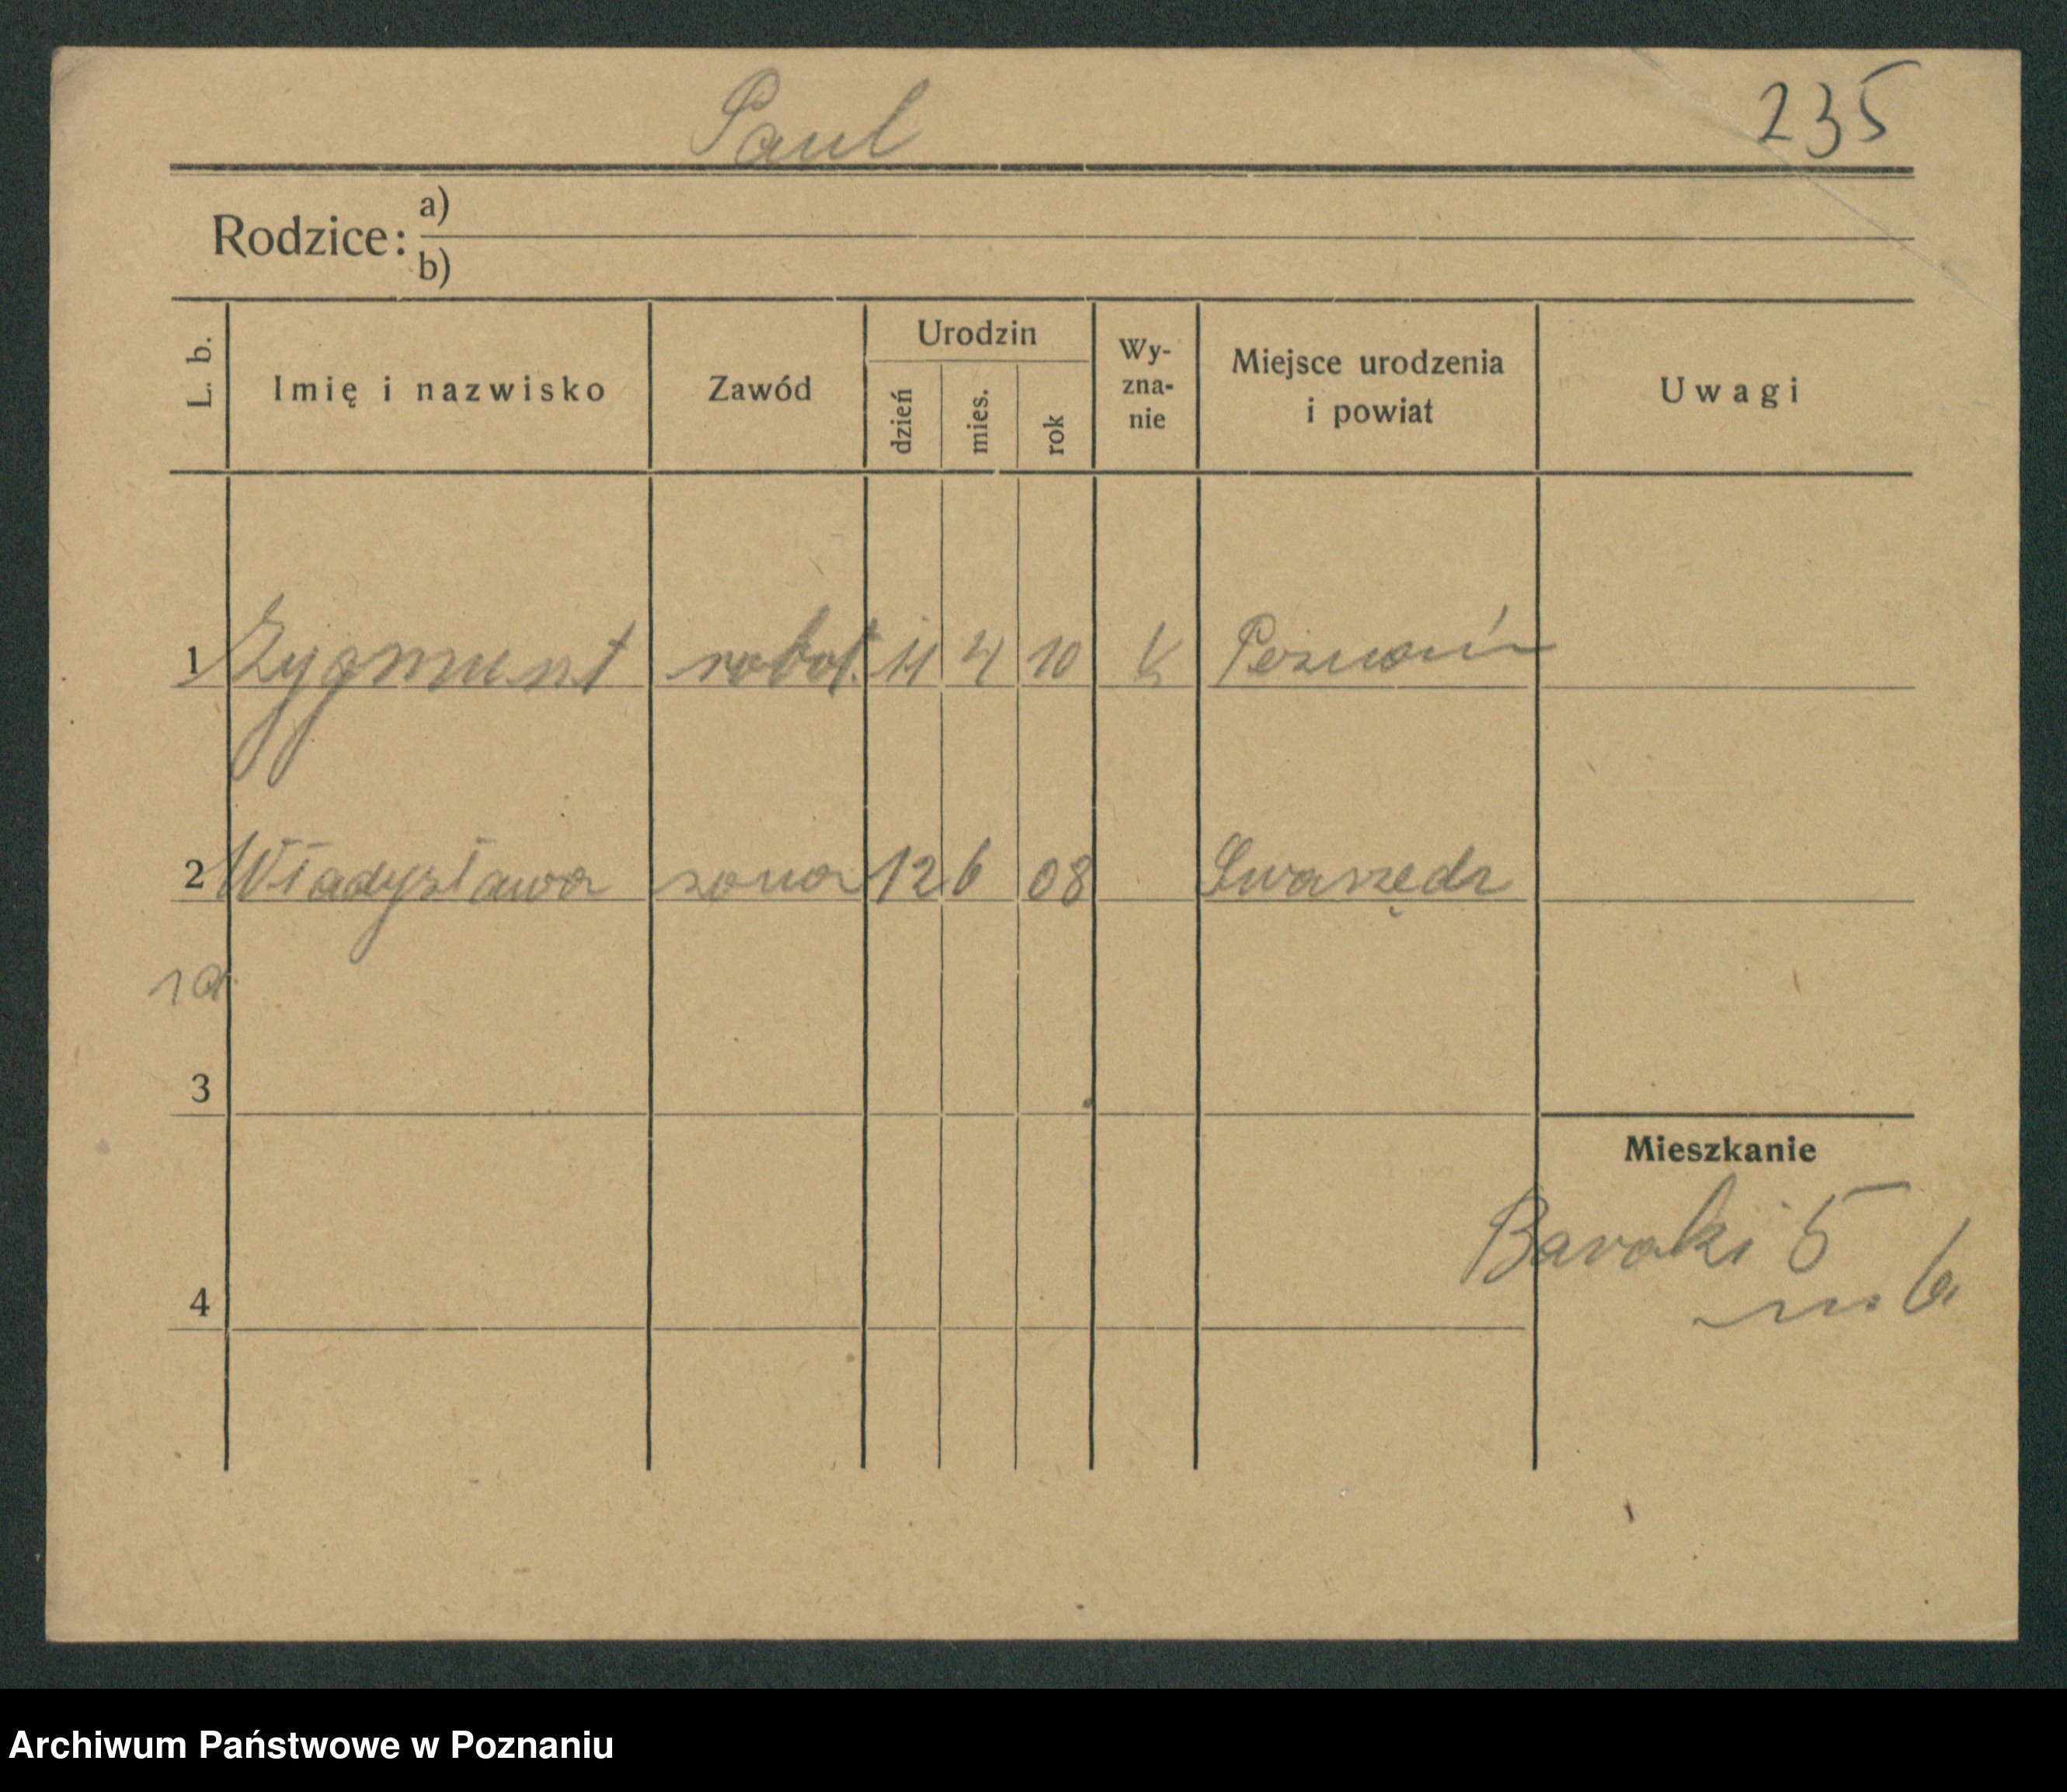 Paul 235
Rodzice: a)
b)
L. b. Imię i nazwisko Zawód Urodzin dzień mies. rok Wy-zna-nie Miejsce urodzenia i powiat Uwagi
1 Zygmunt robot. 11 4 10 k Poznań
2 Władysława żona 12 6 08 Swarzędz
3
Mieszkanie
Baraki 5
4 m. 6
Archiwum Państwowe w Poznaniu